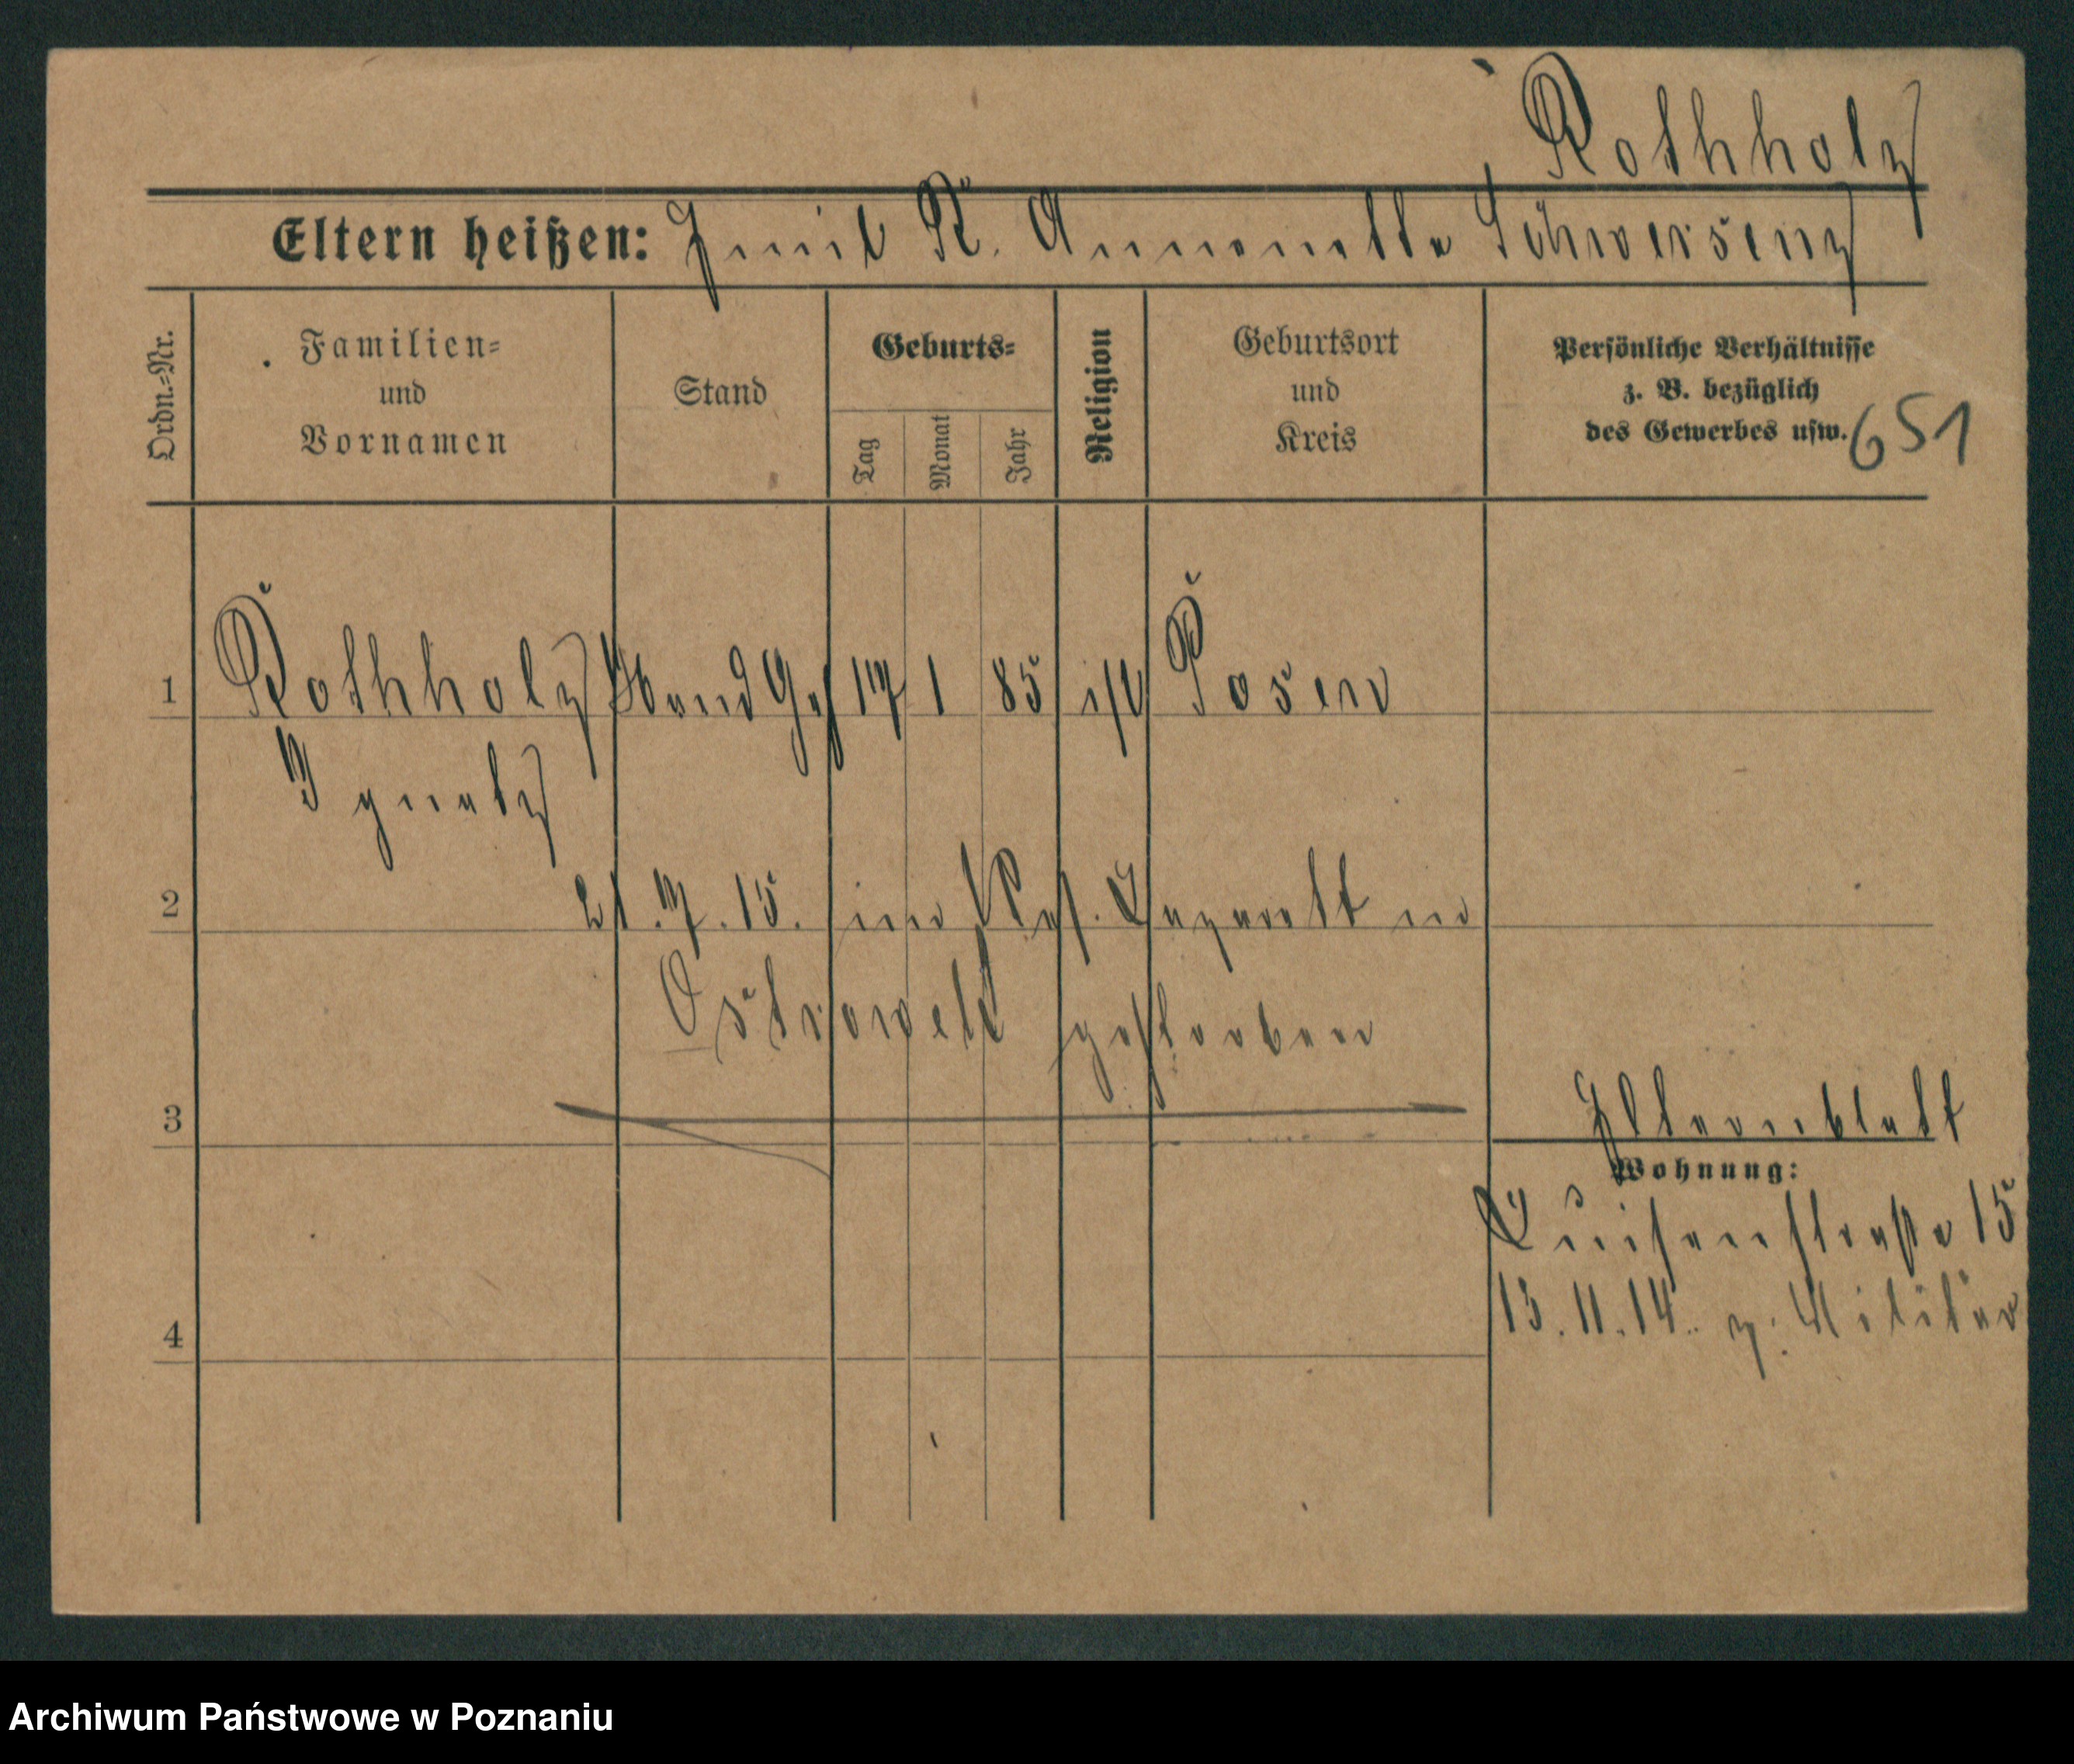 Rothholz
Eltern heißen: Emil R. Annonetta Schwersenz
Ordn.=Nr.
Familien=
und
Vornamen
Stand
Geburts=
Tag
Monat
Jahr
Religion
Geburtsort
und
Kreis
Persönliche Verhältnisse
z. B. bezüglich
des Gewerbes usw.
651
1 Rothholz Hand Geh 17 1 85 isr Posen
Ignatz
2 21.7.15. im Res. Lazarett in
Ostrowek gestorben
3
Elternblatt
Wohnung:
Luisenstraße 15
13.11.14. z. Militär
4
Archiwum Państwowe w Poznaniu